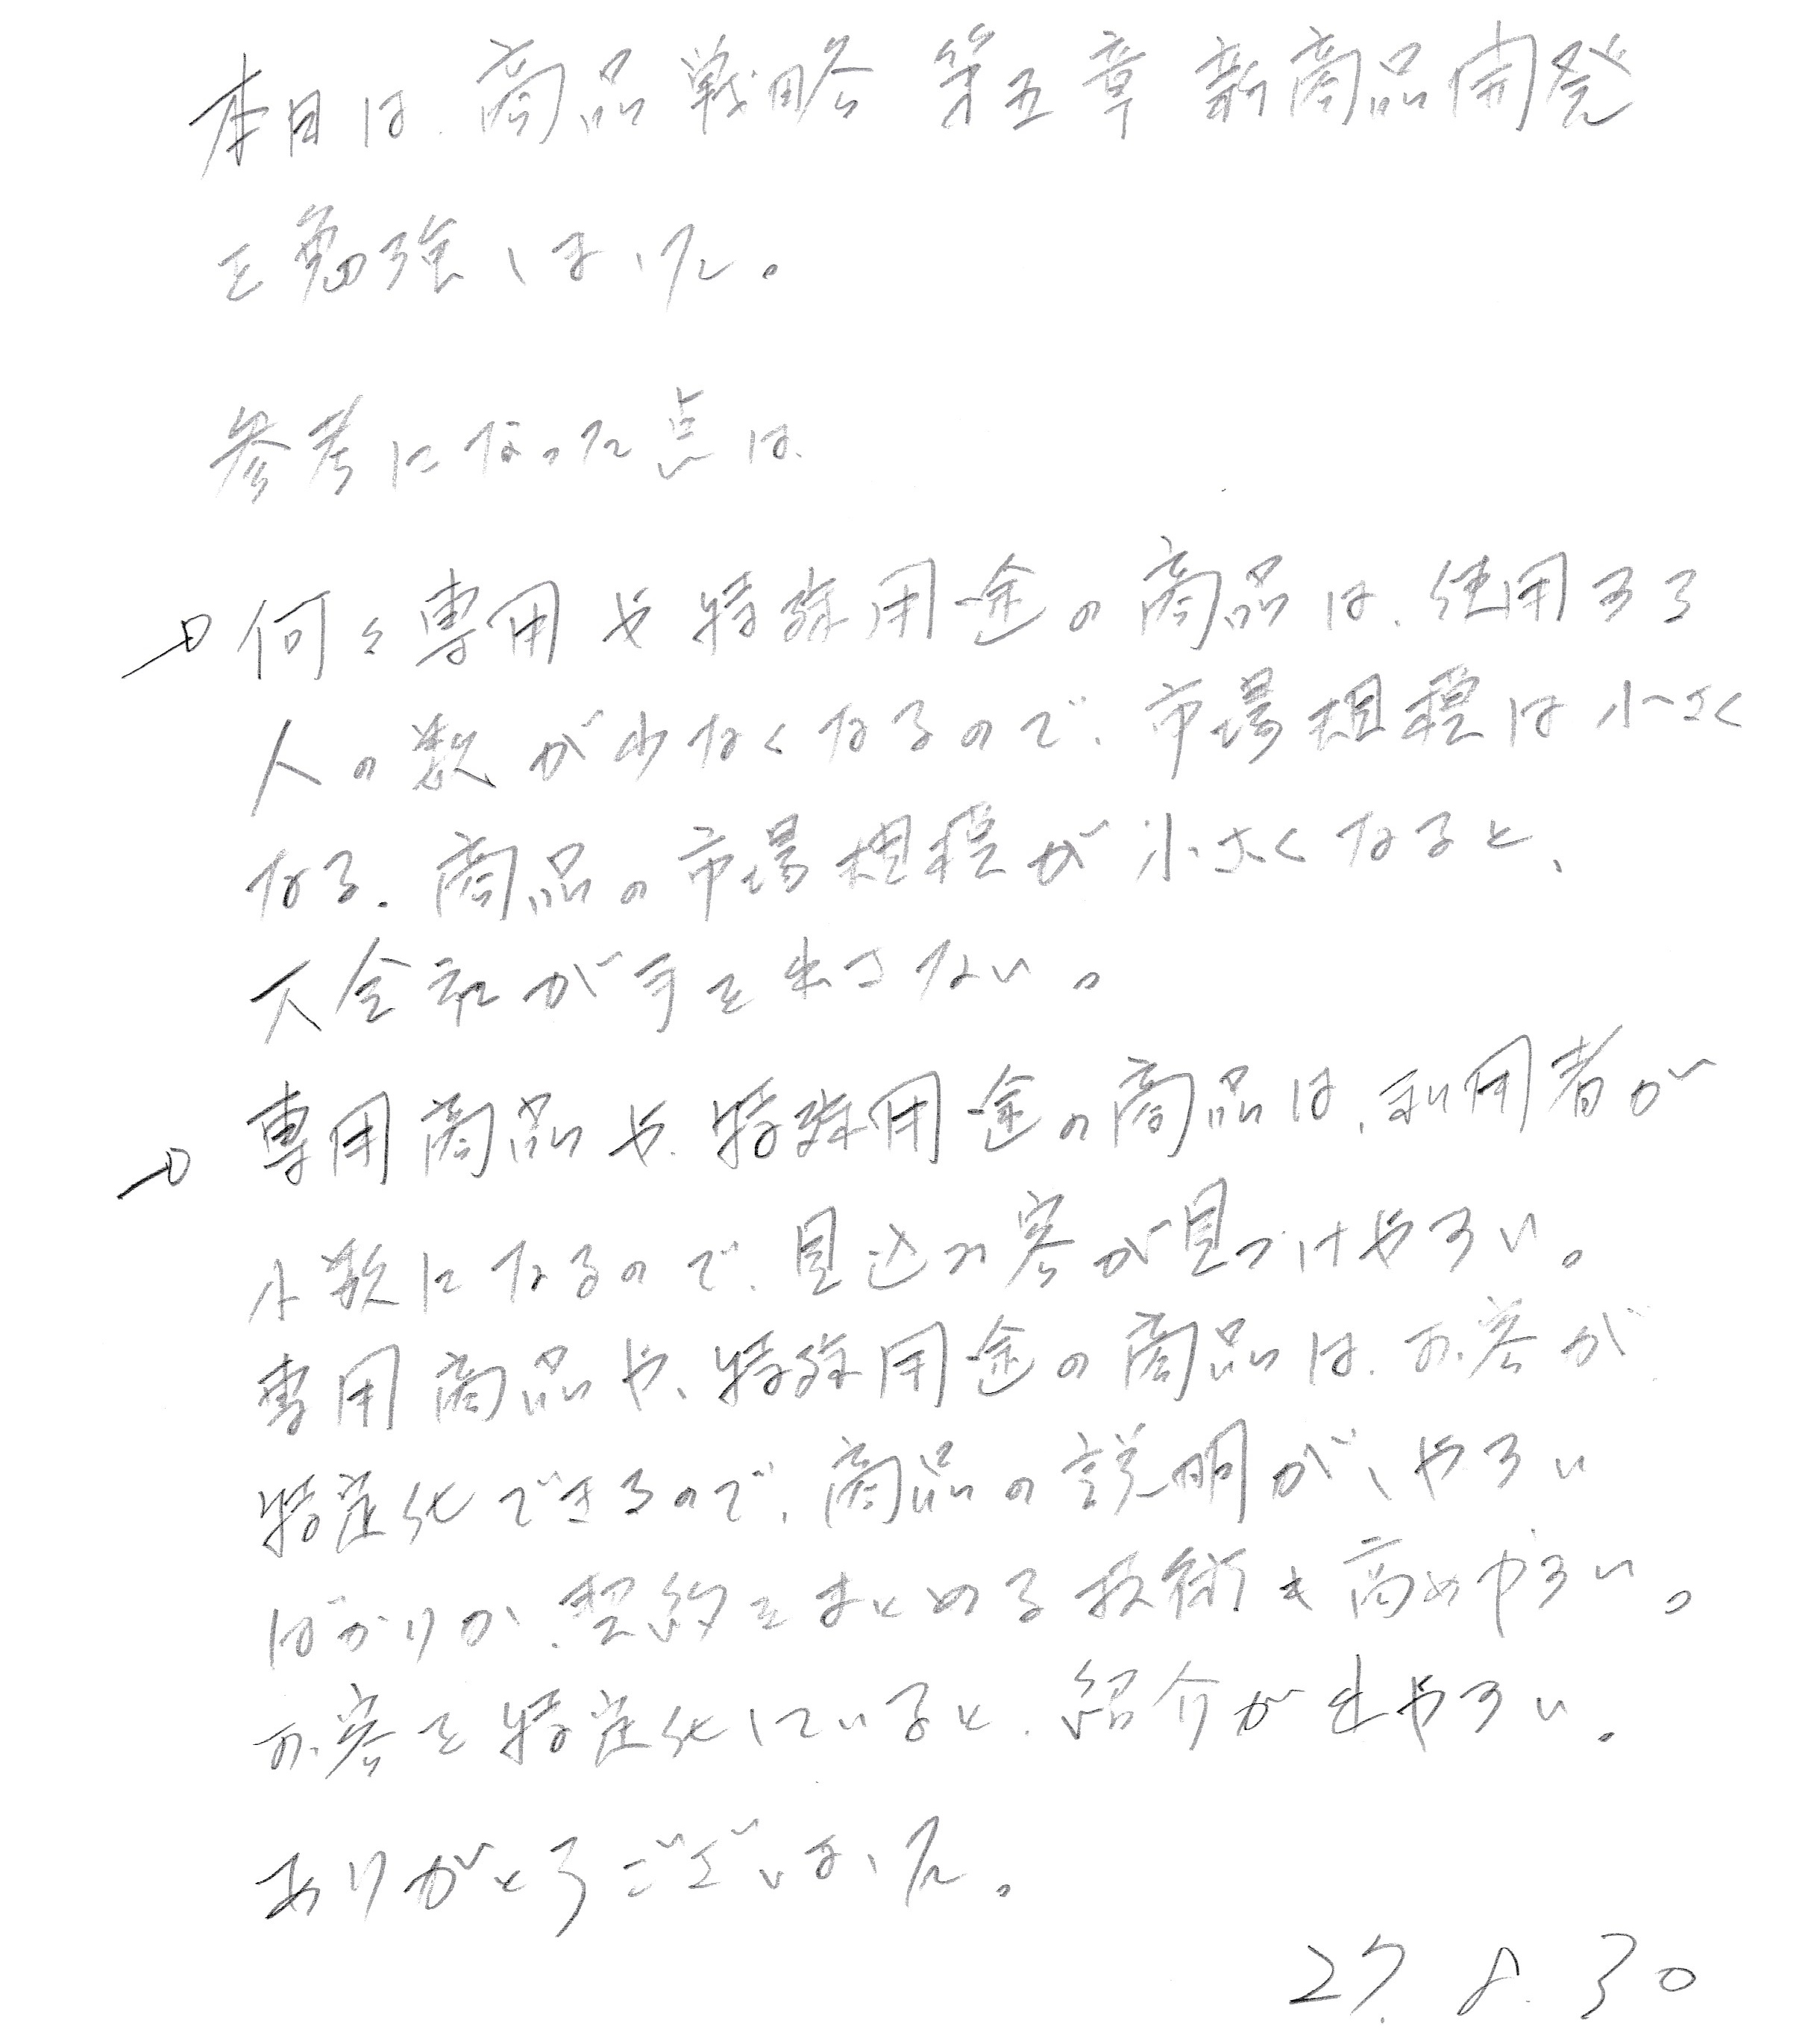 本日は、商品戦略 第五章 新商品開発
を勉強しました。
参考になった点は、
→何々専用や特殊用途の商品は、使用する
人の数が少なくなるので、市場規模は小さく
なる。商品の市場規模が小さくなると、
大会社が手を出さない。
→専用商品や、特殊用途の商品は、利用者が
小数になるので、見込み客が見つけやすい。
専用商品や、特殊用途の商品は、お客が
特定化できるので、商品の説明がしやすい
ばかりか、契約をまとめる技術も高めやすい。
お客を特定化していると、紹介が出やすい。
ありがとうございました。
27. 8. 30